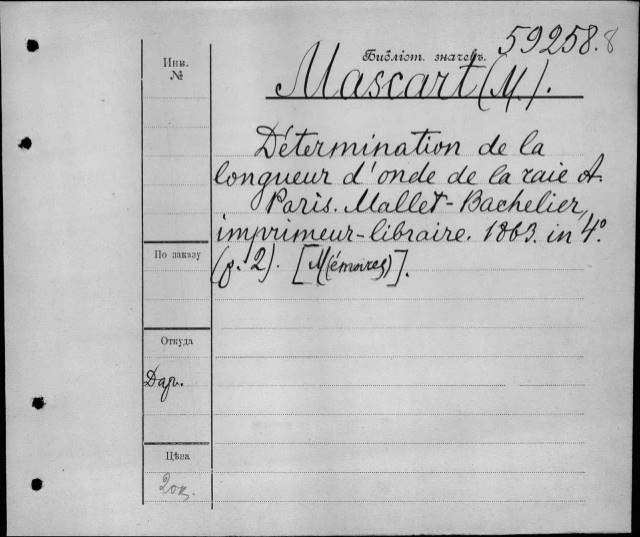 59258.8
Инв.
№
Библіот. значекъ.
Mascart (M.).
Détermination de la
longueur d'onde de la raie A.
Paris. Mallet-Bachelier,
imprimeur-libraire. 1863. in 4°.
(p. 2). [M(émoires)].
По заказу
Откуда
Дар.
Цѣна
20к.